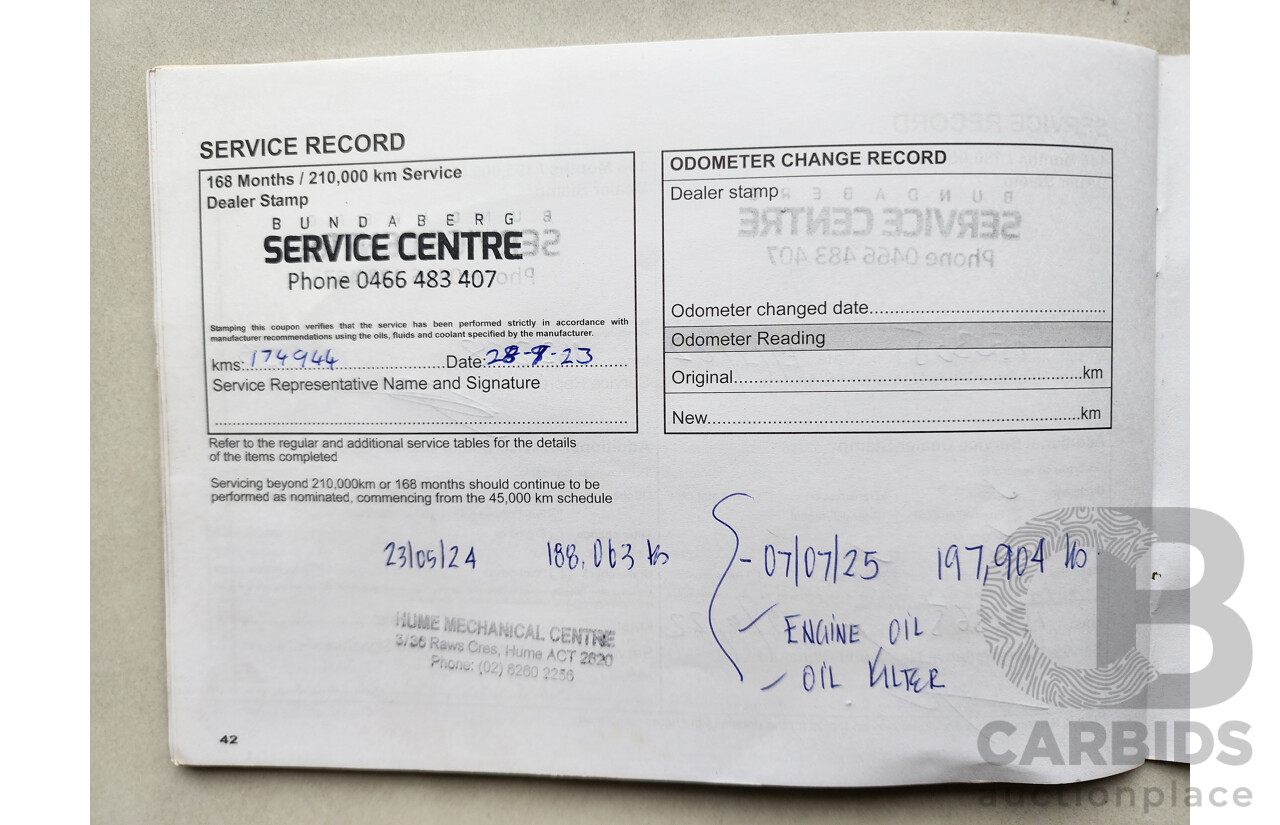 SERVICE RECORD
168 Months / 210,000 km Service
Dealer Stamp
BUNDABERG
SERVICE CENTRE
Phone 0466 483 407
Stamping this coupon verifies that the service has been performed strictly in accordance with
manufacturer recommendations using the oils, fluids and coolant specified by the manufacturer.
kms: 174944 Date: 28-8-23
Service Representative Name and Signature
Refer to the regular and additional service tables for the details
of the items completed
Servicing beyond 210,000km or 168 months should continue to be
performed as nominated, commencing from the 45,000 km schedule
23/05/24 188,063
HUME MECHANICAL CENTRE
3/36 Raws Cres, Hume ACT 2620
Phone: (02) 6260 2256
42
ODOMETER CHANGE RECORD
Dealer stamp
Odometer changed date
Odometer Reading
Original km
New km
- 07/07/25 197,904
✓ ENGINE OIL
✓ OIL FILTER
CB
CARBIDS
auctionplace